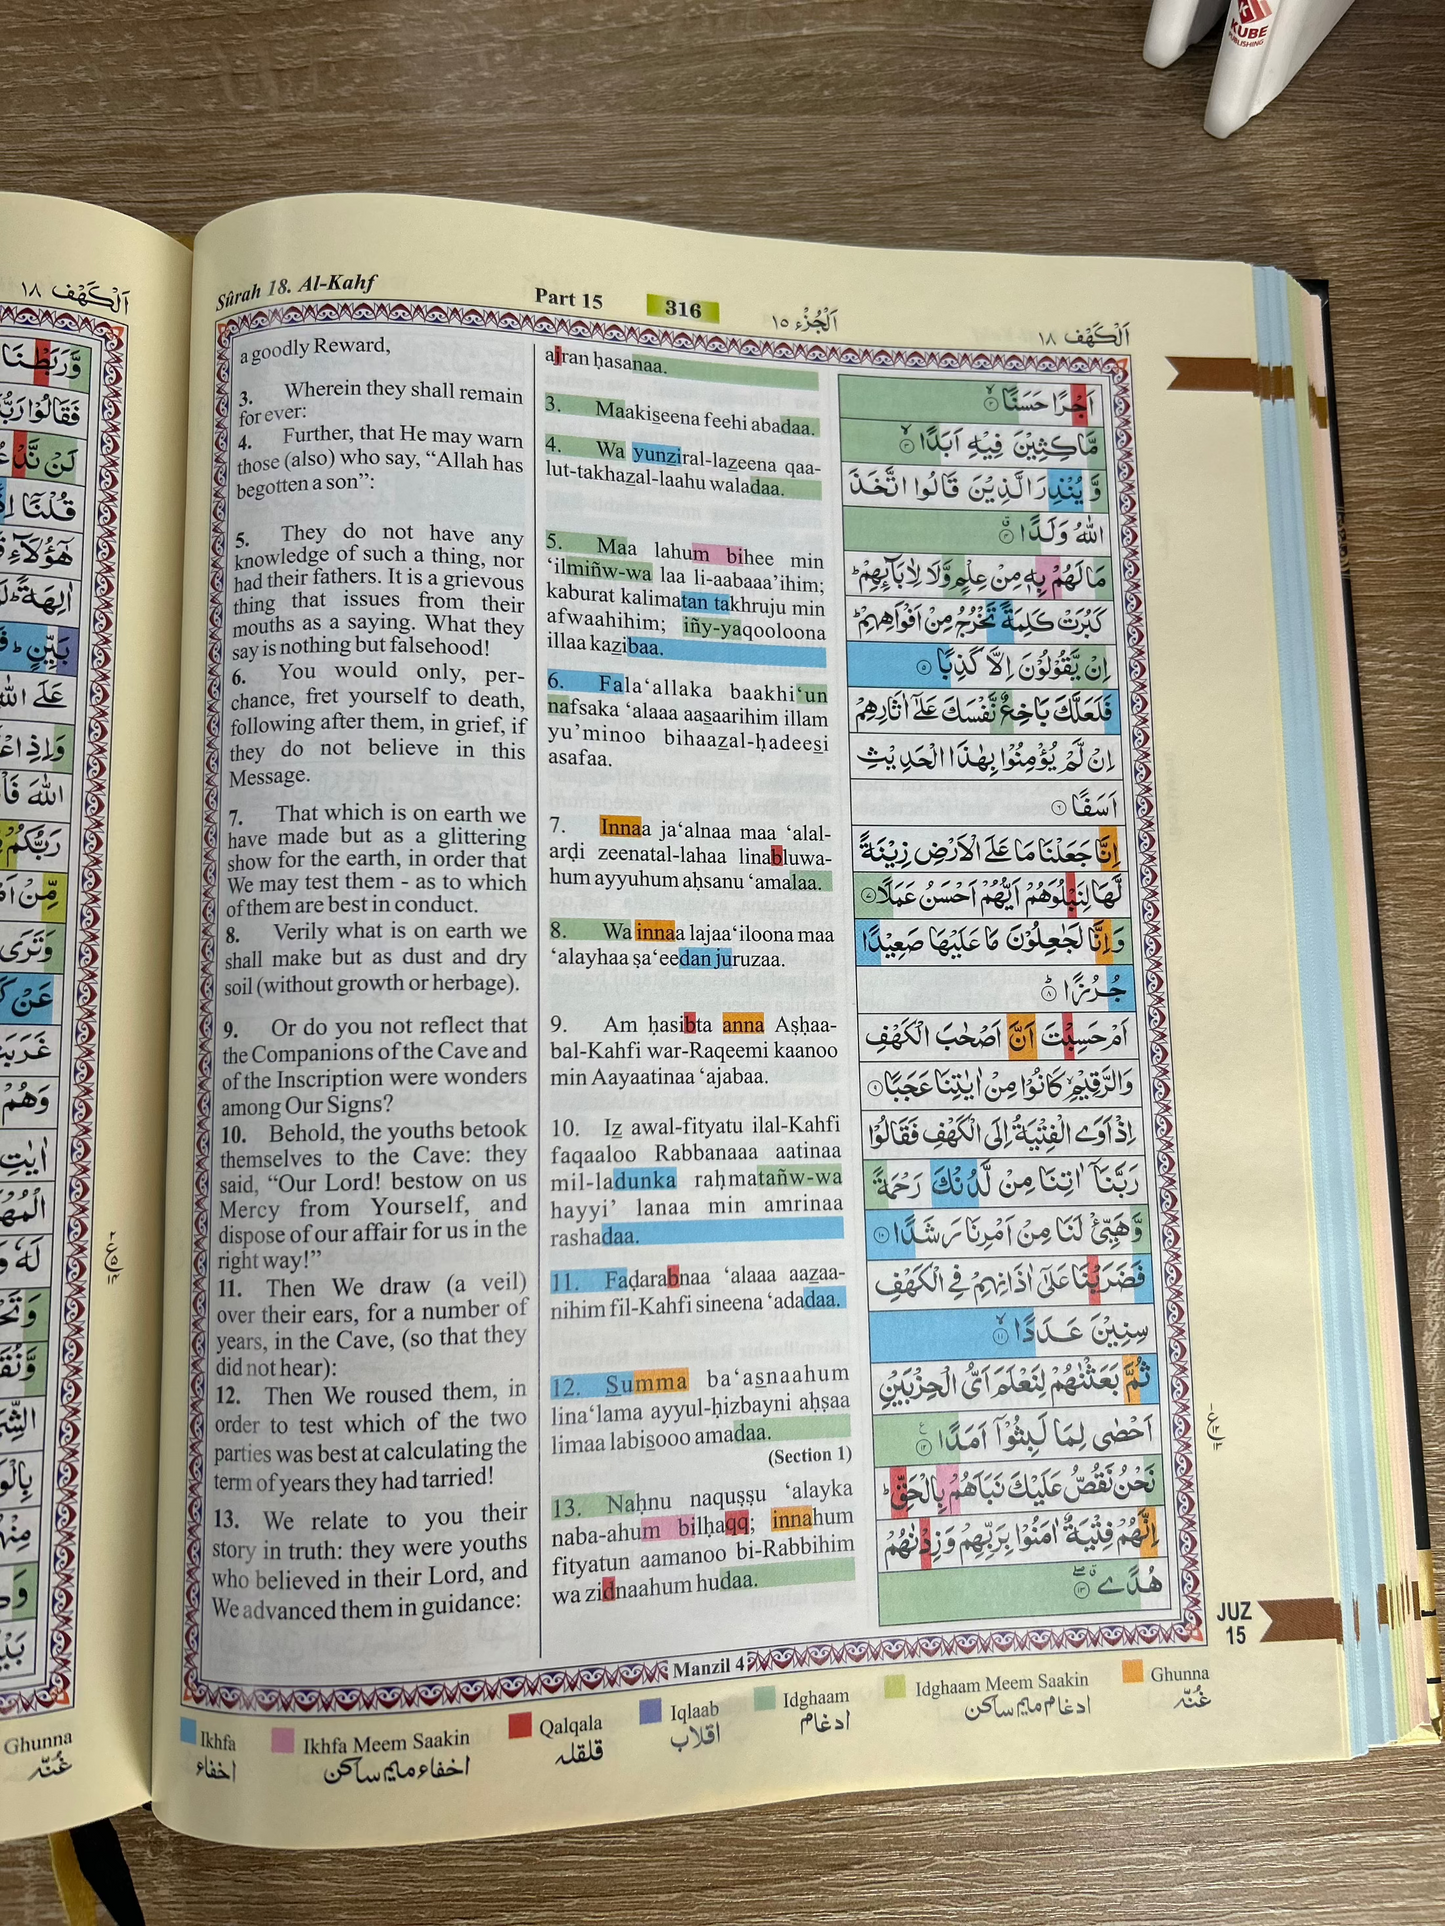 KUBE
PUBLISHING
اَلْكَهْف ١٨
Sûrah 18. Al-Kahf
Part 15
316
اَلْجُزْء ١٥
اَلْكَهْف ١٨
a goodly Reward,
3. Wherein they shall remain
for ever:
4. Further, that He may warn
those (also) who say, “Allah has
begotten a son”:
5. They do not have any
knowledge of such a thing, nor
had their fathers. It is a grievous
thing that issues from their
mouths as a saying. What they
say is nothing but falsehood!
6. You would only, per-
chance, fret yourself to death,
following after them, in grief, if
they do not believe in this
Message.
7. That which is on earth we
have made but as a glittering
show for the earth, in order that
We may test them - as to which
of them are best in conduct.
8. Verily what is on earth we
shall make but as dust and dry
soil (without growth or herbage).
9. Or do you not reflect that
the Companions of the Cave and
of the Inscription were wonders
among Our Signs?
10. Behold, the youths betook
themselves to the Cave: they
said, “Our Lord! bestow on us
Mercy from Yourself, and
dispose of our affair for us in the
right way!”
11. Then We draw (a veil)
over their ears, for a number of
years, in the Cave, (so that they
did not hear):
12. Then We roused them, in
order to test which of the two
parties was best at calculating the
term of years they had tarried!
13. We relate to you their
story in truth: they were youths
who believed in their Lord, and
We advanced them in guidance:
ajran ḥasanaa.
3. Maakiseena feehi abadaa.
4. Wa yunziral-lazeena qaa-
lut-takhazal-laahu waladaa.
5. Maa lahum bihee min
‘ilmiñw-wa laa li-aabaaa’ihim;
kaburat kalimatan takhruju min
afwaahihim; iñy-yaqooloona
illaa kazibaa.
6. Fala‘allaka baakhi‘un
nafsaka ‘alaaa aasaarihim illam
yu’minoo bihaazal-ḥadeesi
asafaa.
7. Innaa ja‘alnaa maa ‘alal-
arḍi zeenatal-lahaa linabluwa-
hum ayyuhum aḥsanu ‘amalaa.
8. Wa innaa lajaa‘iloona maa
‘alayhaa ṣa‘eedan juruzaa.
9. Am ḥasibta anna Aṣḥaa-
bal-Kahfi war-Raqeemi kaanoo
min Aayaatinaa ‘ajabaa.
10. Iz awal-fityatu ilal-Kahfi
faqaaloo Rabbanaaa aatinaa
mil-ladunka raḥmatañw-wa
hayyi’ lanaa min amrinaa
rashadaa.
11. Faḍarabnaa ‘alaaa aazaa-
nihim fil-Kahfi sineena ‘adadaa.
12. Summa ba‘asnaahum
lina‘lama ayyul-ḥizbayni aḥṣaa
limaa labisooo amadaa.
(Section 1)
13. Naḥnu naquṣṣu ‘alayka
naba-ahum bilḥaqq; innahum
fityatun aamanoo bi-Rabbihim
wa zidnaahum hudaa.
اَجْرًا حَسَنًا ۙ﴿۲﴾
مَّاكِثِيْنَ فِيْهِ اَبَدًا ۙ﴿۳﴾
وَّيُنْذِرَ الَّذِيْنَ قَالُوا اتَّخَذَ
اللّٰهُ وَلَدًا ۗ﴿۴﴾
مَا لَهُمْ بِهٖ مِنْ عِلْمٍ وَّلَا لِاٰبَآئِهِمْ ؕ
كَبُرَتْ كَلِمَةً تَخْرُجُ مِنْ اَفْوَاهِهِمْ ؕ
اِنْ يَّقُوْلُوْنَ اِلَّا كَذِبًا ﴿۵﴾
فَلَعَلَّكَ بَاخِعٌ نَّفْسَكَ عَلٰٓى اٰثَارِهِمْ
اِنْ لَّمْ يُؤْمِنُوْا بِهٰذَا الْحَدِيْثِ
اَسَفًا ﴿۶﴾
اِنَّا جَعَلْنَا مَا عَلَى الْاَرْضِ زِيْنَةً
لَّهَا لِنَبْلُوَهُمْ اَيُّهُمْ اَحْسَنُ عَمَلًا ﴿۷﴾
وَاِنَّا لَجٰعِلُوْنَ مَا عَلَيْهَا صَعِيْدًا
جُرُزًا ؕ﴿۸﴾
اَمْ حَسِبْتَ اَنَّ اَصْحٰبَ الْكَهْفِ
وَالرَّقِيْمِ كَانُوْا مِنْ اٰيٰتِنَا عَجَبًا ﴿۹﴾
اِذْ اَوَى الْفِتْيَةُ اِلَى الْكَهْفِ فَقَالُوْا
رَبَّنَآ اٰتِنَا مِنْ لَّدُنْكَ رَحْمَةً
وَّهَيِّئْ لَنَا مِنْ اَمْرِنَا رَشَدًا ﴿۱۰﴾
فَضَرَبْنَا عَلٰٓى اٰذَانِهِمْ فِى الْكَهْفِ
سِنِيْنَ عَدَدًا ۙ﴿۱۱﴾
ثُمَّ بَعَثْنٰهُمْ لِنَعْلَمَ اَىُّ الْحِزْبَيْنِ
اَحْصٰى لِمَا لَبِثُوْٓا اَمَدًا ﴿۱۲﴾
نَحْنُ نَقُصُّ عَلَيْكَ نَبَاَهُمْ بِالْحَقِّ ؕ
اِنَّهُمْ فِتْيَةٌ اٰمَنُوْا بِرَبِّهِمْ وَزِدْنٰهُمْ
هُدًى ﴿۱۳﴾
JUZ
15
Manzil 4
Ikhfa
اخفاء
Ikhfa Meem Saakin
اخفاء میم ساکن
Qalqala
قلقلہ
Iqlaab
اقلاب
Idghaam
ادغام
Idghaam Meem Saakin
ادغام میم ساکن
Ghunna
غُنّہ
Ghunna
غُنّہ